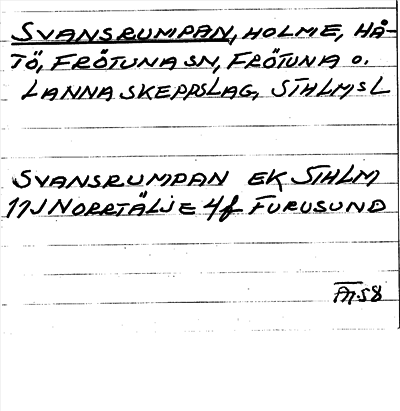 SVANSRUMPAN, HOLME, HÅ-
TÖ, FRÖTUNA SN, FRÖTUNA O.
LÄNNA SKEPPSLAG, STHLMS L
SVANSRUMPAN EK STHLM
11J NORRTÄLJE 4f FURUSUND